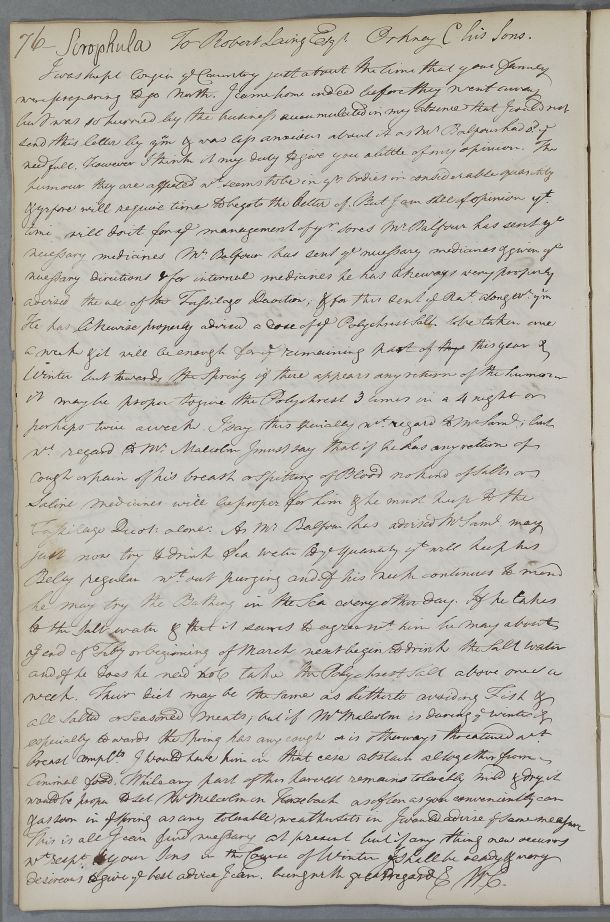 76 Scrophula To Robert Laing Esqr Orkney C his Sons.
I was kept long in ye Country just about the time that your family
were preparing to go North. I came home indeed before they went away
but I was so hurried by the business accumulated in my absence that I could not
send this letter by ym & was less anxious about it as Mr Balfour had
needfull. However I think it my duty to give you a little of my opinion. The
humour they are affected wt seems to be in yr bodies in considerable quantity
& yrfore will require time to be gote the better of. But I am still of opinion yt
time will do it for ye management of yr sores Mr Balfour has sent ye
necessary medicines Mr Balfour has sent ye necessary medicines & given ye
necessary directions & for internal medicines he has likeways very properly
advised the use of the Tussilago Decoction, & for this sent ye Rect along wt ym
He has likewise properly advised a dose of ye Polychrest Salt to be taken once
a week & it will be enough for ye remaining part of this year &
Winter but towards the Spring if there appears any return of the humour
it may be proper to give the Polychrest 3 times in a 4 night or
perhaps twice a week. I say this specially wt regard to Mr Saml, but
wt regard to Mr Malcolm I must say that if he has any return of
cough or pain of his breast or spitting of Blood no kind of Salts or
Saline medicines will be proper for him & he must keep to the
Tussilago Decoct: alone: As Mr Balfour has advised Mr Saml may
just now try to drink Sea water to ye quantity yt will keep his
Belly regular wt out purging and if his neck continues to mend
he may try the Bathing in the Sea every other day. If he takes
to the salt water & that it seems to agree wt him he may about
ye end of Feby or beginning of March next begin to drink the Salt water
and if he does he need not take the Polychrest Salt above once a
week. Their diet may be the same as hitherto avoiding Fish &
all Salted or Seasoned meats; but if Mr Malcolm is during ye winter &
especially towards the Spring has any cough or is otherways threatened wt
breast complts I would have him in that case abstain altogether from
animal food. While any part of this harvest remains tolerably mild & dry it
would be proper to set Mr Malcolm on Horseback as often as you conveniently can
& as soon in ye spring as any tolerable weather sets in I would advise ye same measure
This is all I can find necessary at present but if any thing new occurrs
wt respt to your Sons in the Course of Winter I shall be ready & very
desireous to give ye best advice I can. being wth great regard &c WC.